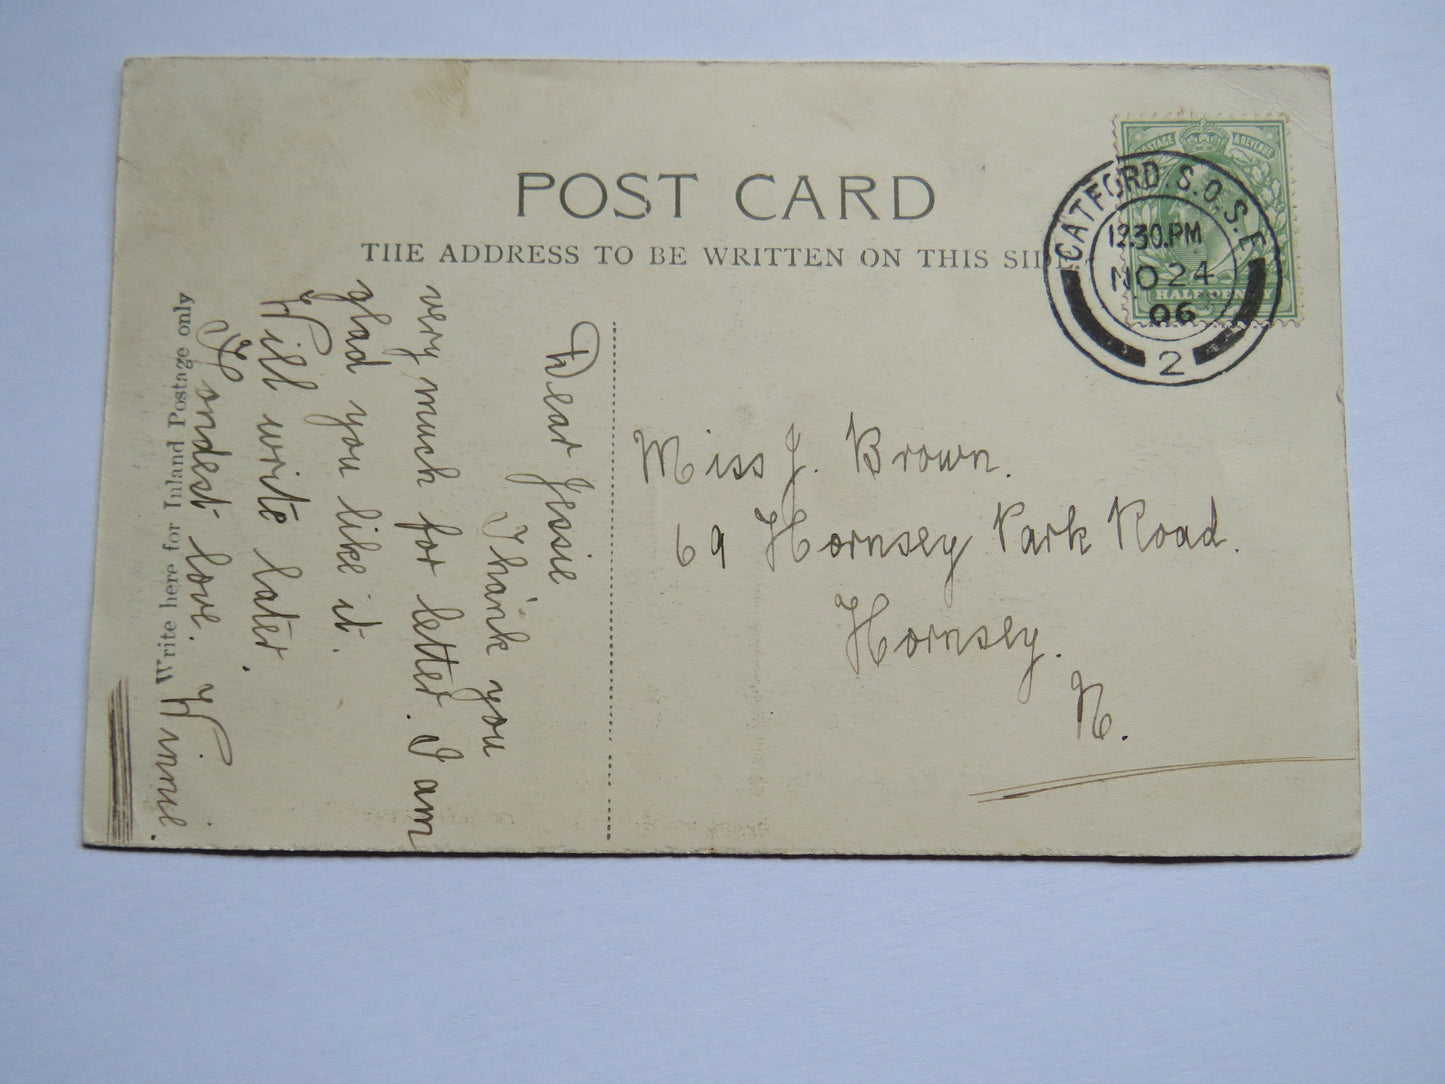 POST CARD
THE ADDRESS TO BE WRITTEN ON THIS SIDE
POSTAGE & REVENUE
HALFPENNY
CATFORD. S.O. S.E.
12.30.PM
NO 24
06
2
Miss J. Brown.
69 Hornsey Park Road.
Hornsey.
N.
Dear Jessie
Thank you
very much for letter. I am
glad you like it.
Will write later.
Fondest love. Winnie.
Write here for Inland Postage only